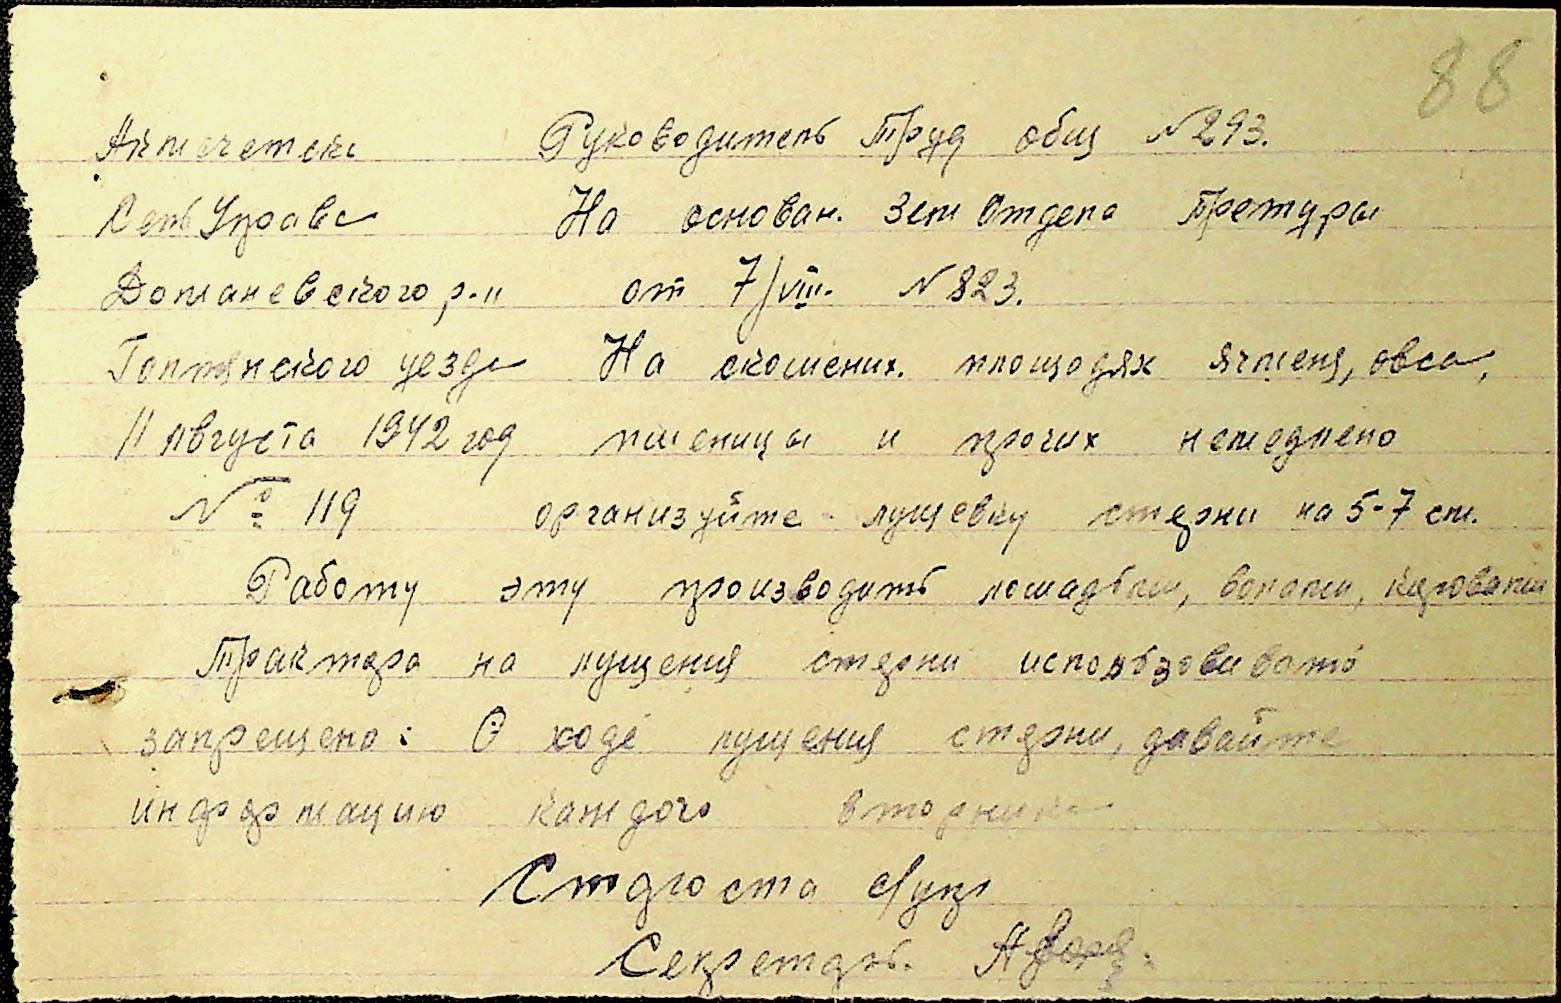 88
Акмечетска Руководитель Труд общ №293.
Сель Управа На основан. Зем Отдела Претуры
Доманевского р-н от 7/VIII. №823.
Голтянского уезда На скошених. площадях ячменя, овса,
11 августа 1942 год пшеницы и прочих немедлено
№ 119 организуйте - лущевку стерни на 5-7 см.
Работу эту производить лошадьми, волами, каровами
Трактора на лущения стерни использовивать
запрещено: О ходе лущения стерни, давайте
информацию каждого вторника
Староста с/упр
Секретарь.